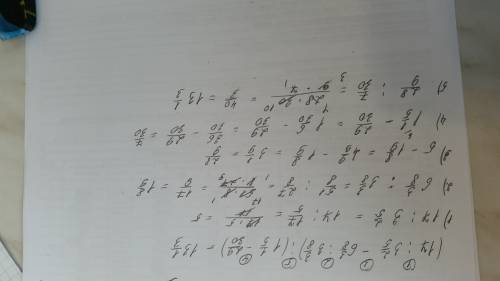 ① ③ ② ⑤ ④
(17 : 3 2/5 − 6 3/8 : 3 3/8) : (1 1/5 − 29/30) = 13 1/3
1) 17 : 3 2/5 = 17 : 17/5 = 17·5/17 = 5
2) 6 3/8 : 3 3/8 = 51/8 : 27/8 = 51·8/8·27 = 17/9 = 1 8/9
3) 5 − 1 8/9 = 4 9/9 − 1 8/9 = 3 1/9 = 28/9
4) 1 1/5 − 29/30 = 1 6/30 − 29/30 = 36/30 − 29/30 = 7/30
5) 28/9 : 7/30 = 28·30/9·7 = 40/3 = 13 1/3